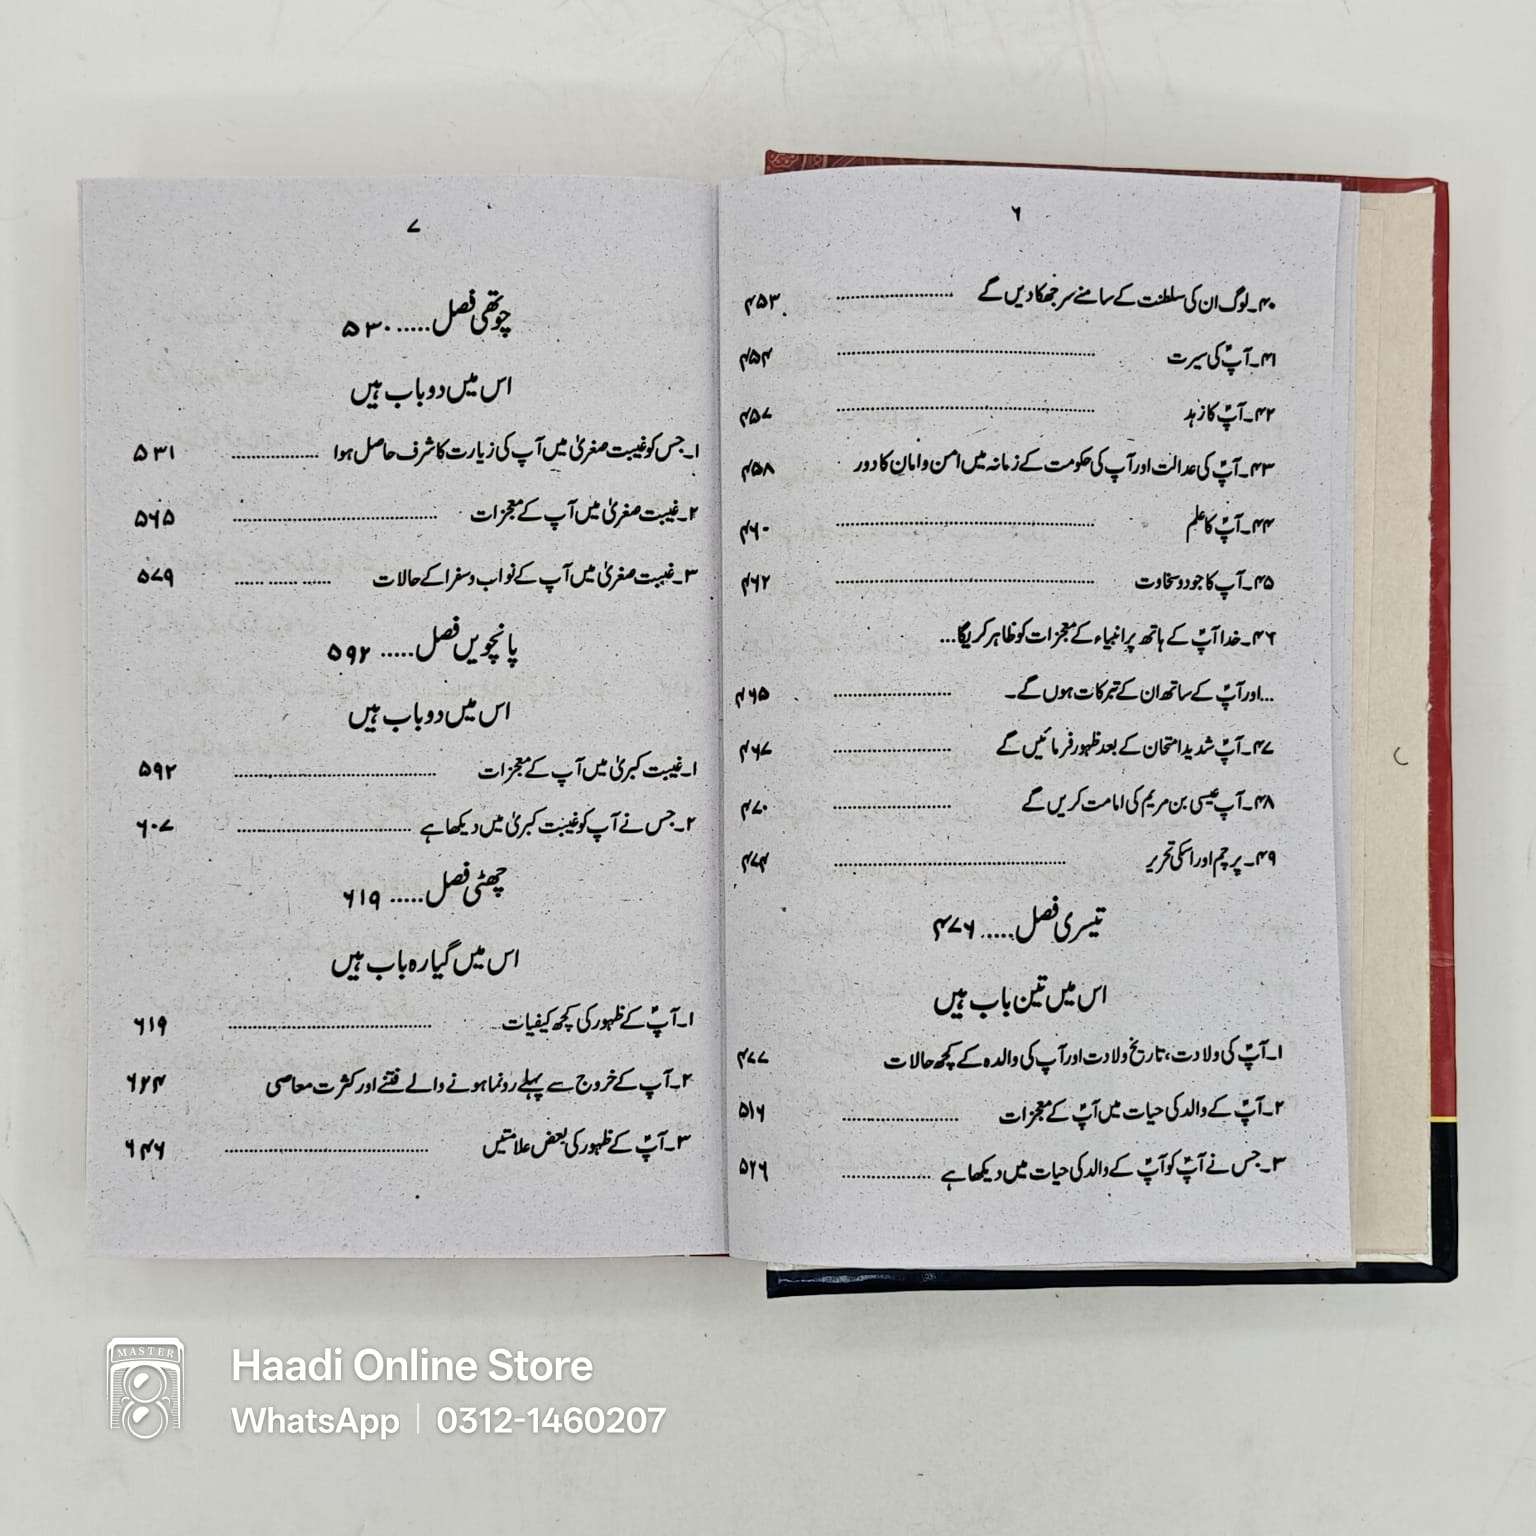 ۶
۴۰۔ لوگ ان کی سلطنت کے سامنے سر جھکا دیں گے ........................ ۴۵۳
۴۱۔ آپؑ کی سیرت ........................ ۴۵۴
۴۲۔ آپؑ کا زہد ........................ ۴۵۷
۴۳۔ آپؑ کی عدالت اور آپ کی حکومت کے زمانہ میں امن و امان کا دور ۴۵۸
۴۴۔ آپؑ کا علم ........................ ۴۶۰
۴۵۔ آپ کا جود و سخاوت ........................ ۴۶۲
۴۶۔ خدا آپؑ کے ہاتھ پر انبیاء کے معجزات کو ظاہر کریگا...
...اور آپؑ کے ساتھ ان کے تبرکات ہوں گے۔ ........................ ۴۶۵
۴۷۔ آپؑ شدید امتحان کے بعد ظہور فرمائیں گے ........................ ۴۶۷
۴۸۔ آپ عیسی بن مریم کی امامت کریں گے ........................ ۴۷۰
۴۹۔ پرچم اور اسکی تحریر ........................ ۴۷۴
تیسری فصل ..... ۴۷۶
اس میں تین باب ہیں
۱۔ آپؑ کی ولادت، تاریخ ولادت اور آپ کی والدہ کے کچھ حالات ۴۷۷
۲۔ آپؑ کے والد کی حیات میں آپؑ کے معجزات ........................ ۵۱۶
۳۔ جس نے آپؑ کو آپؑ کے والد کی حیات میں دیکھا ہے ........................ ۵۲۶
۷
چوتھی فصل ..... ۵۳۰
اس میں دو باب ہیں
۱۔ جس کو غیبت صغریٰ میں آپ کی زیارت کا شرف حاصل ہوا ........................ ۵۳۱
۲۔ غیبت صغریٰ میں آپ کے معجزات ........................ ۵۶۵
۳۔ غیبت صغریٰ میں آپ کے نواب و سفرا کے حالات ...... ...... ...... ۵۷۹
پانچویں فصل ..... ۵۹۲
اس میں دو باب ہیں
۱۔ غیبت کبریٰ میں آپ کے معجزات ........................ ۵۹۲
۲۔ جس نے آپ کو غیبت کبریٰ میں دیکھا ہے ........................ ۶۰۷
چھٹی فصل ..... ۶۱۹
اس میں گیارہ باب ہیں
۱۔ آپؑ کے ظہور کی کچھ کیفیات ........................ ۶۱۹
۲۔ آپ کے خروج سے پہلے رونما ہونے والے فتنے اور کثرت معاصی ۶۲۴
۳۔ آپؑ کے ظہور کی بعض علامتیں ........................ ۶۴۶
MASTER
Haadi Online Store
WhatsApp | 0312-1460207